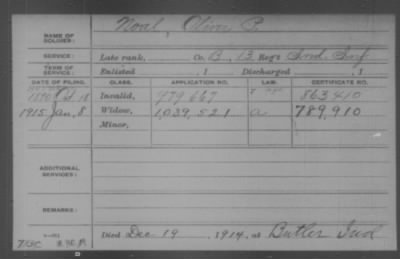 NAME OF SOLDIER: Noal, Oliver P.
SERVICE: Late rank, Co. B, 13 Reg't Ind Inf
TERM OF SERVICE: Enlisted , 1 Discharged , 1
DATE OF FILING. CLASS. APPLICATION NO. LAW. CERTIFICATE NO.
1890 Oct 18 Invalid, 479 667 863410
1915 Jan, 8 Widow, 1,039,521 a 789,910
Minor,
ADDITIONAL SERVICES:
REMARKS:
Died Dec 19, 1914, at Butler Ind